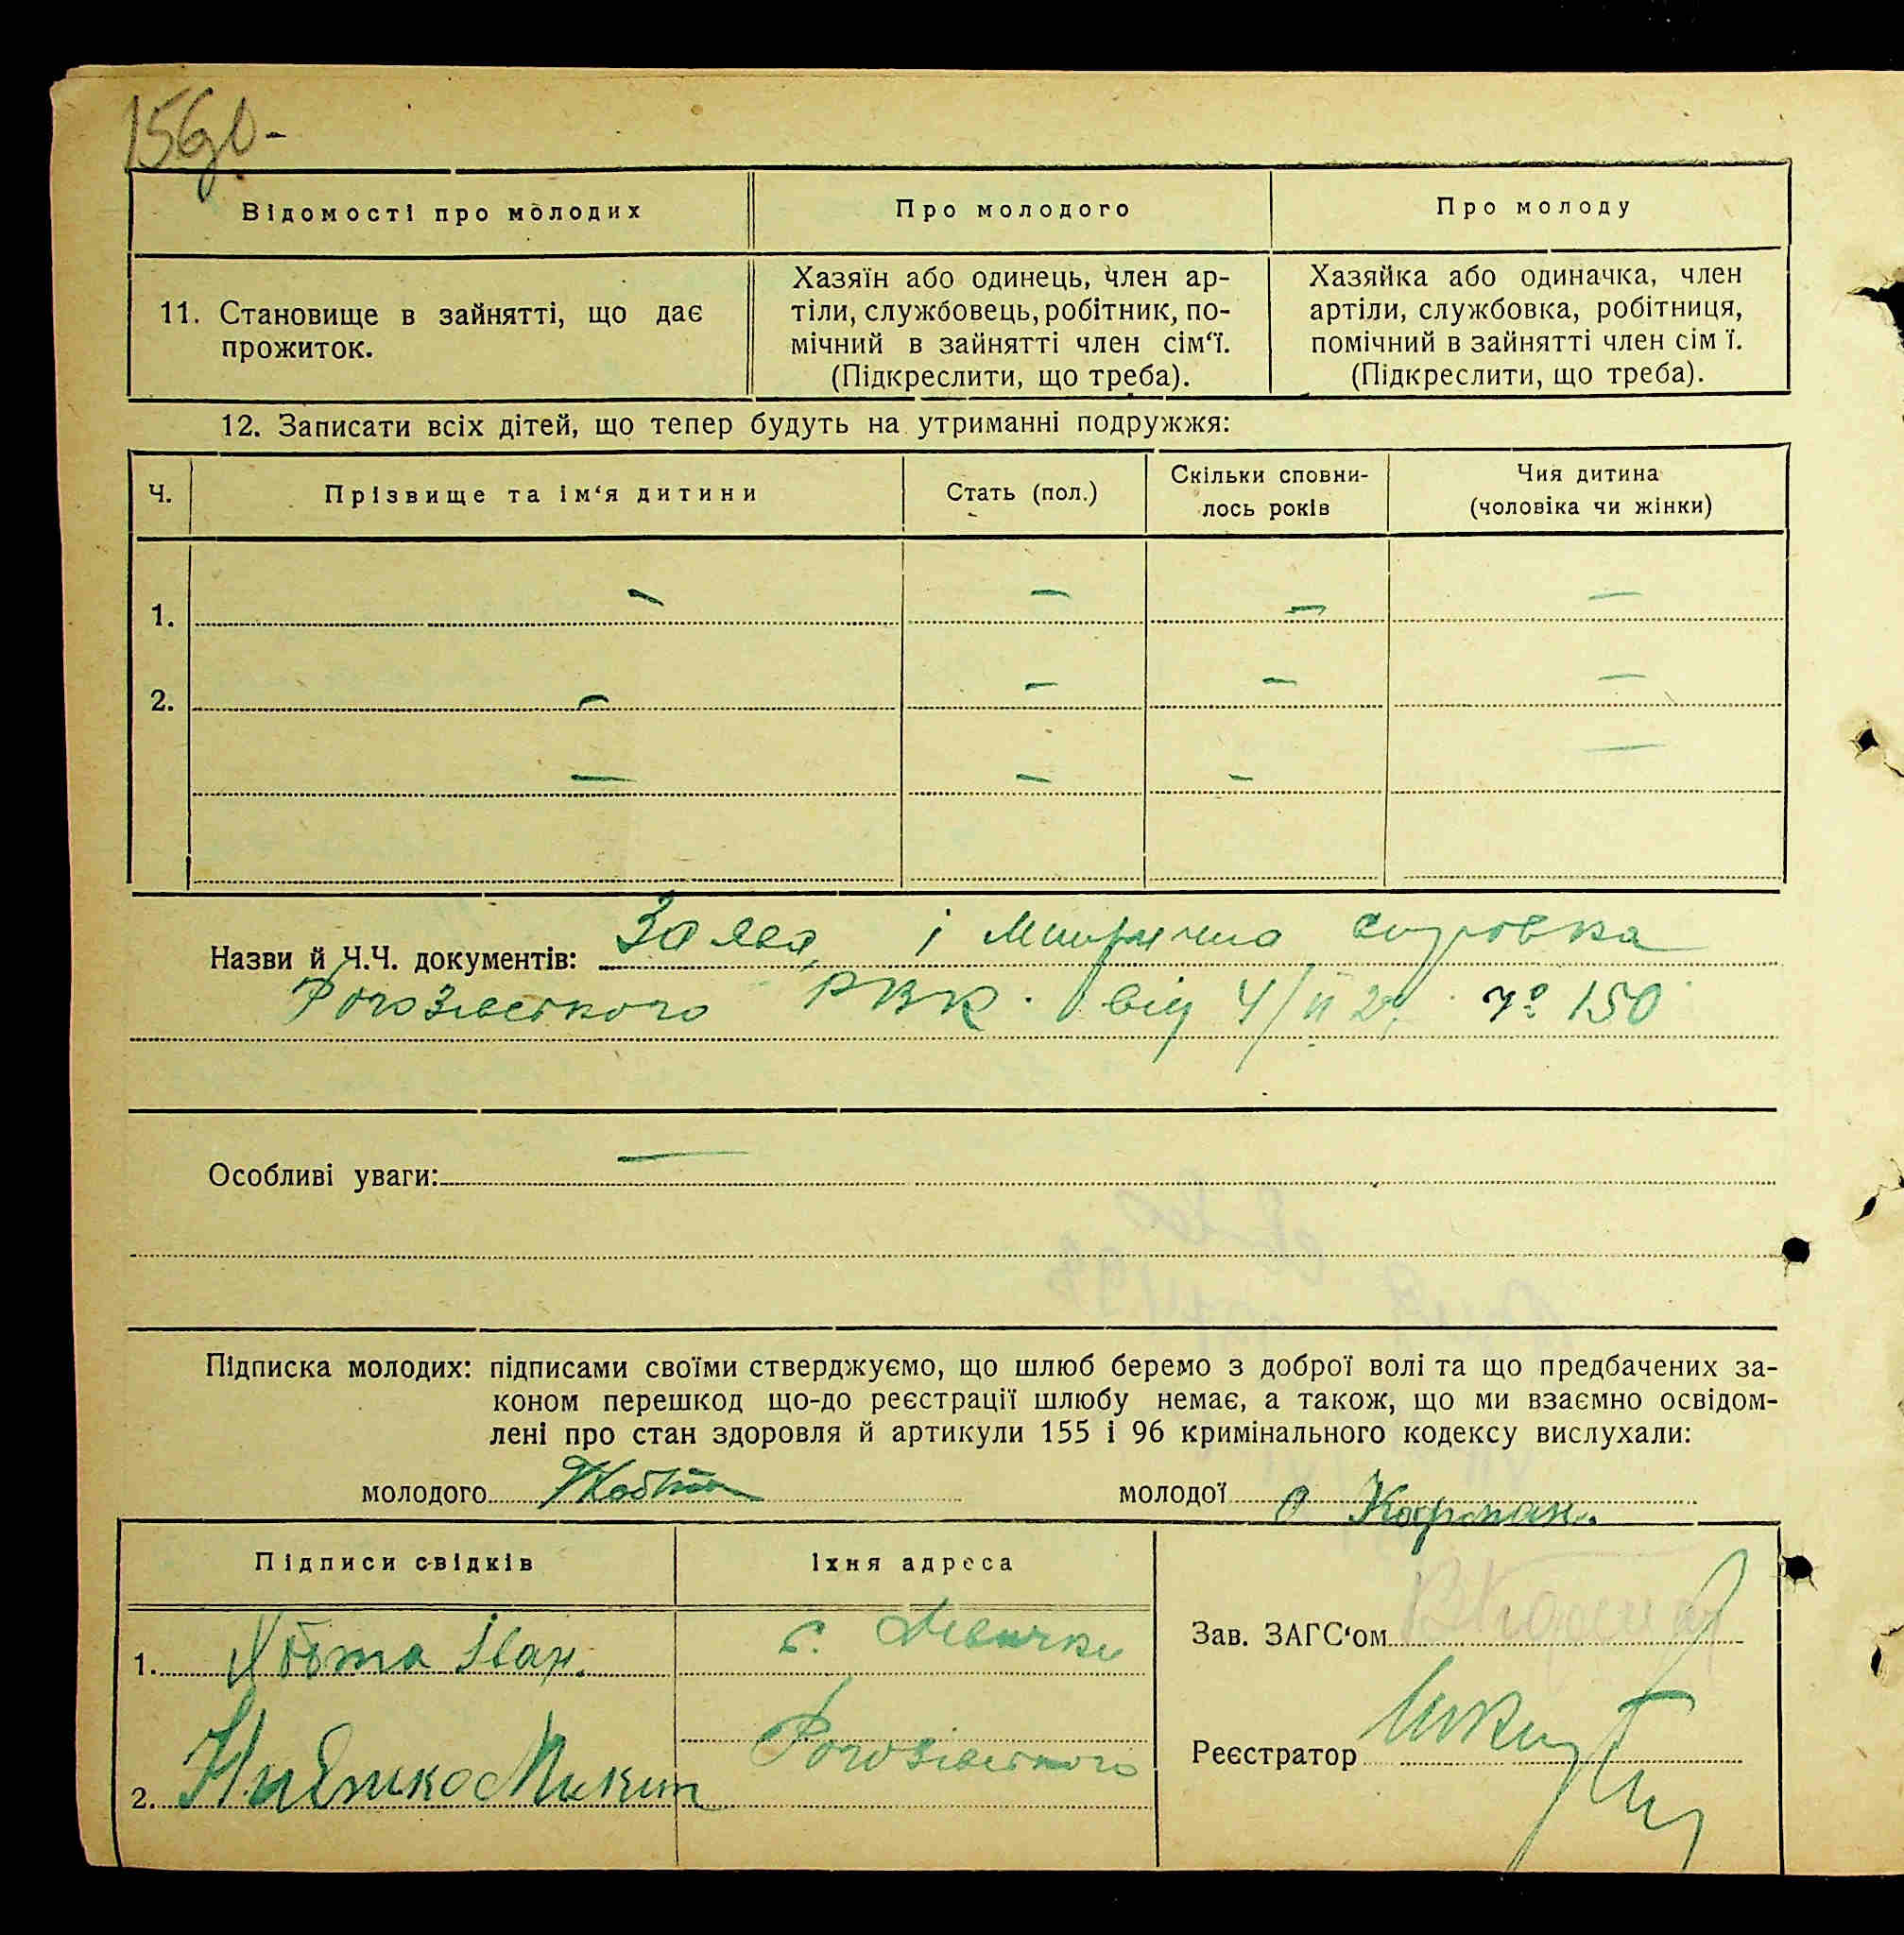 Відомості про молодих
Про молодого
Про молоду
11. Становище в зайнятті, що дає прожиток.
Хазяїн або одинець, член ар-
тіли, службовець, робітник, по-
мічний в зайнятті член сім‘ї.
(Підкреслити, що треба).
Хазяйка або одиначка, член
артіли, службовка, робітниця,
помічний в зайнятті член сім ї.
(Підкреслити, що треба).
12. Записати всіх дітей, що тепер будуть на утриманні подружжя:
Ч.
Прізвище та ім‘я дитини
Стать (пол.)
Скільки сповни-
лось років
Чия дитина
(чоловіка чи жінки)
1. — — — —
2. — — — —
— — — —
Назви й Ч.Ч. документів: Заява і справка
Рогозівського РВК. від 4/II 29 № 150
Особливі уваги: —
Підписка молодих: підписами своїми стверджуємо, що шлюб беремо з доброї волі та що предбачених за-
коном перешкод що-до реєстрації шлюбу немає, а також, що ми взаємно освідом-
лені про стан здоровля й артикули 155 і 96 кримінального кодексу вислухали:
молодого
молодої
Підписи свідків
Їхня адреса
1. Іван
с. Дівички
Зав. ЗАГС‘ом
Рогозівського
Реєстратор
2. Микит